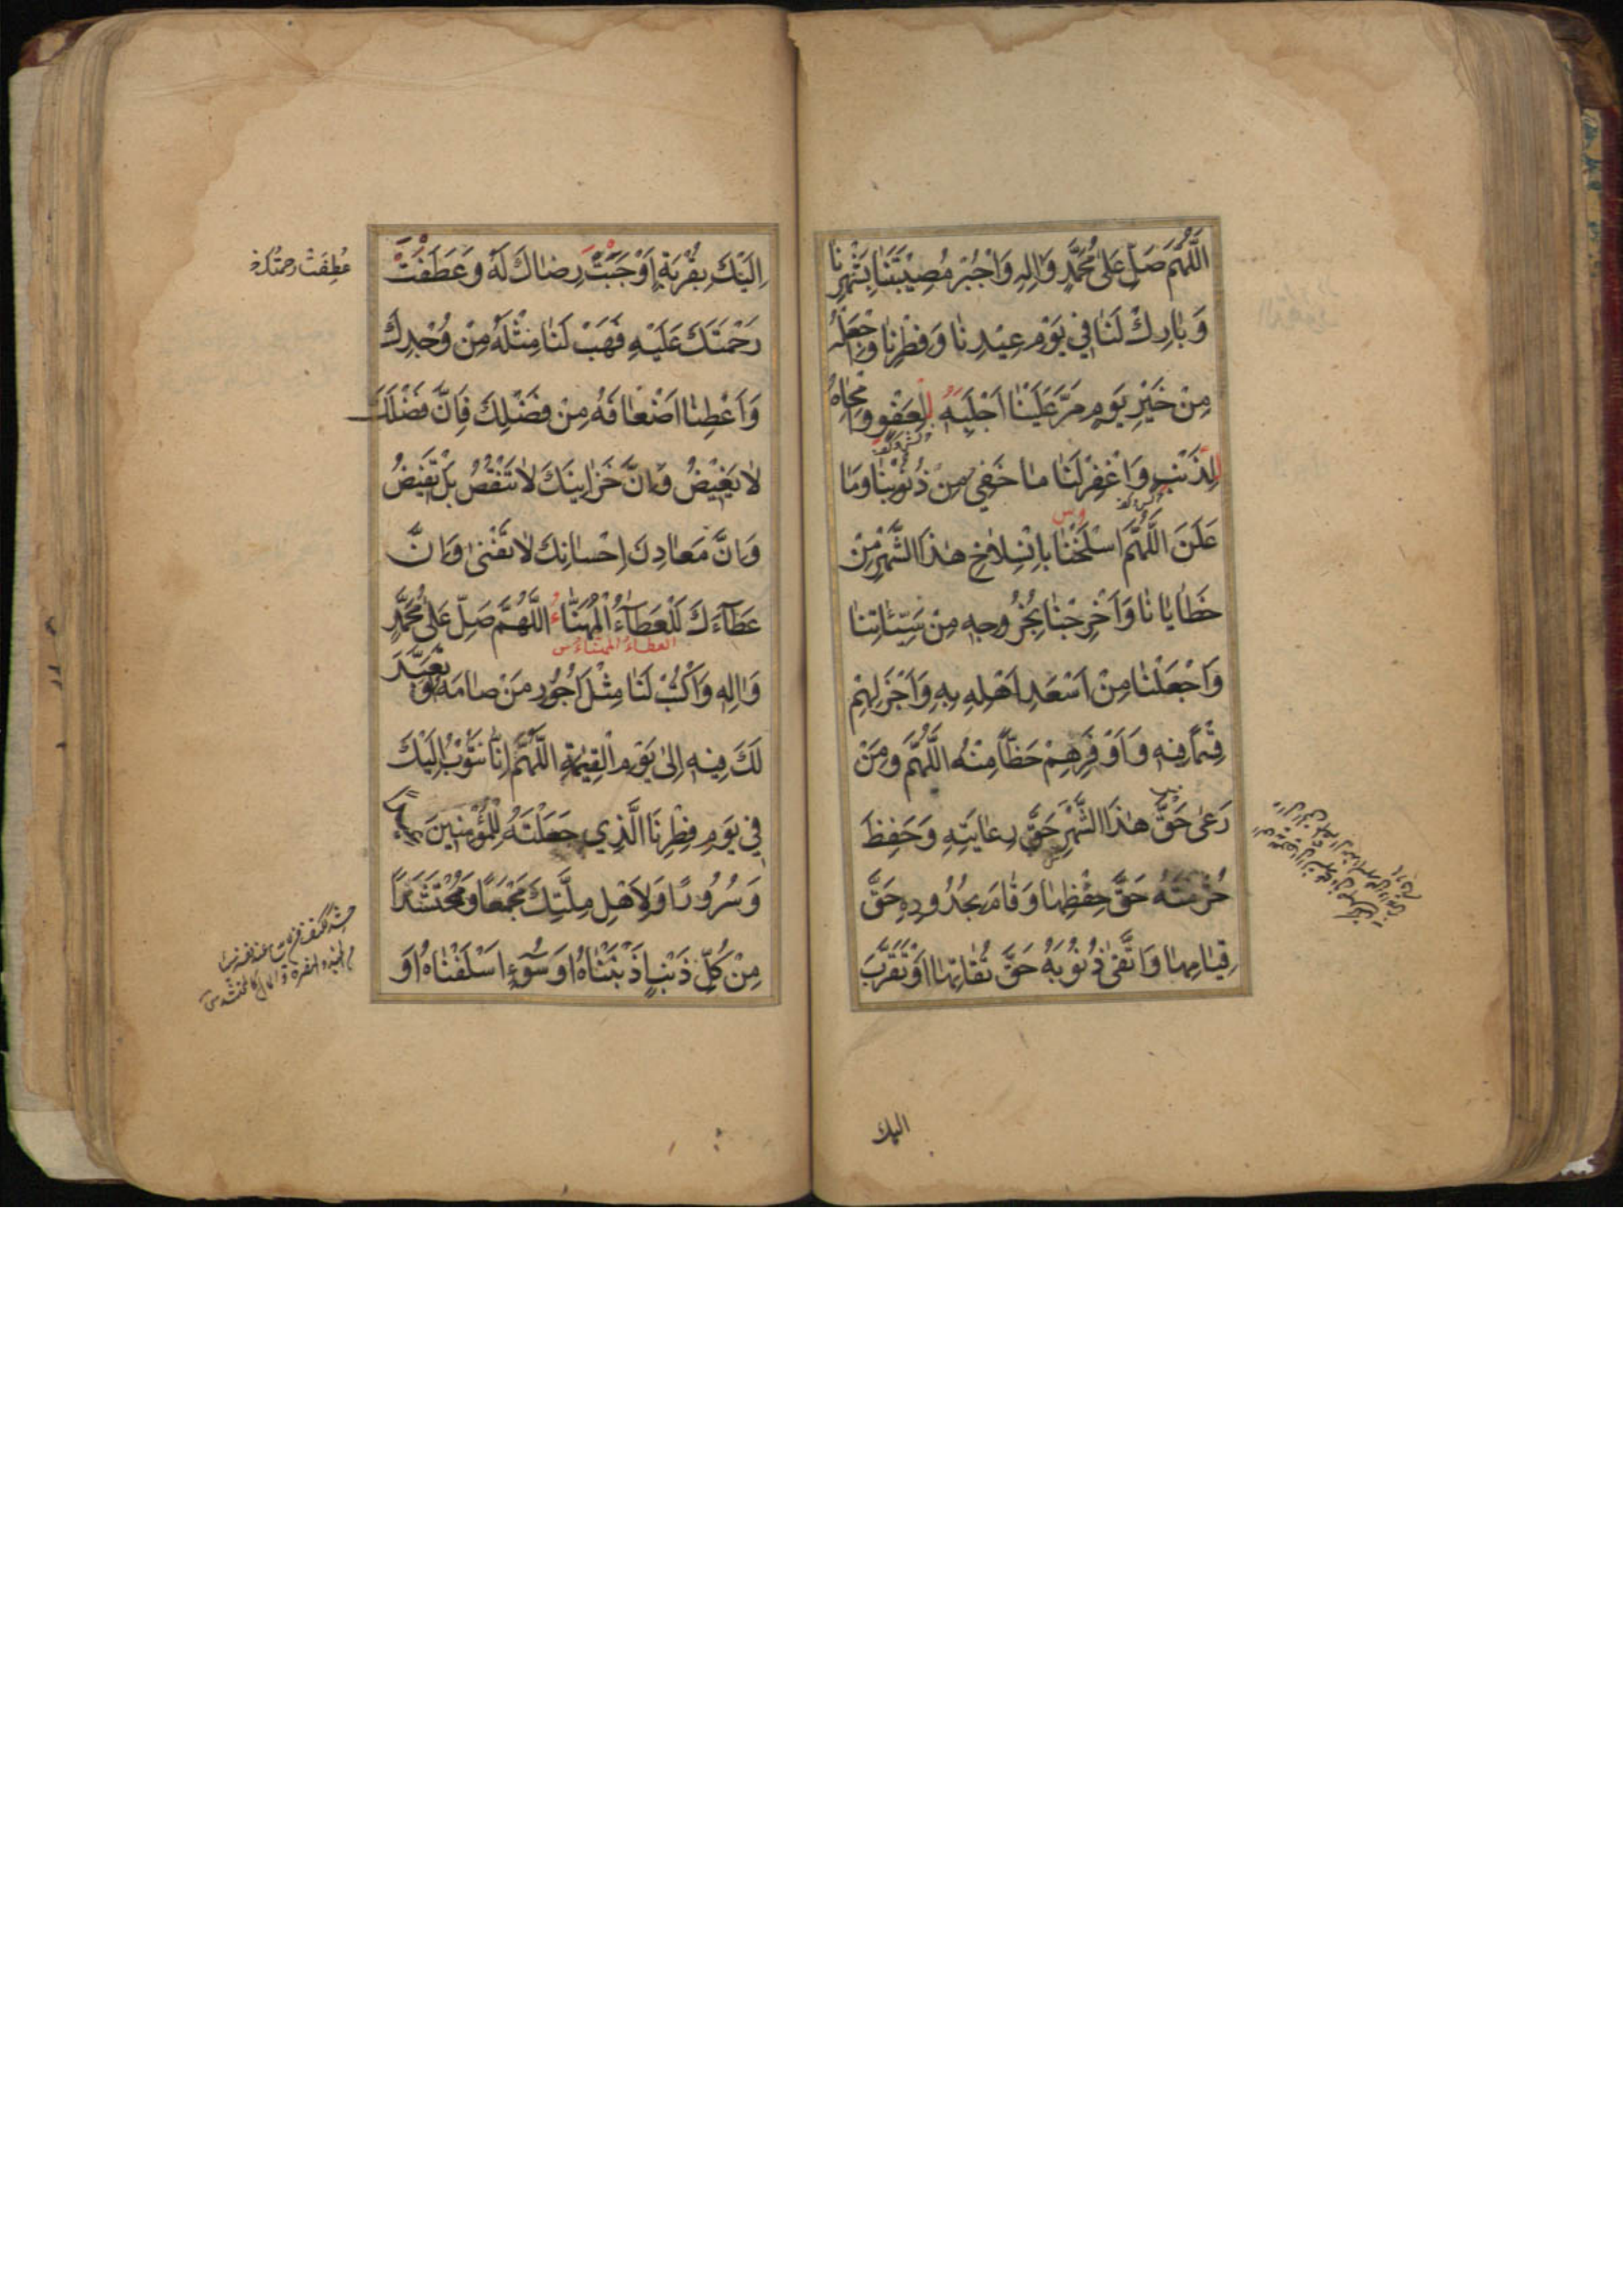 اَللّٰهُمَّ صَلِّ عَلىٰ مُحَمَّدٍ وَاٰلِهِ وَاجْبُرْ مُصِيْبَتَنَا بِشَهْرِنَا
وَبٰارِكْ لَنٰا فِي يَوْمِ عِيْدِنٰا وَفِطْرِنٰا وَاجْعَلْهُ
مِنْ خَيْرِ يَوْمٍ مَرَّ عَلَيْنٰا اَجْلَبِهُ لِلْعَفْوِ وَاَمْحٰاهُ
لِلذَّنْبِ وَاغْفِرْ لَنٰا مٰا خَفِيَ مِنْ ذُنُوْبِنٰا وَمٰا
عَلَنَ اَللّٰهُمَّ اسْلَخْنٰا بِانْسِلاٰخِ هٰذَا الشَّهْرِ مِنْ
خَطٰايٰانٰا وَاَخْرِجْنٰا بِخُرُوجِهِ مِنْ سَيِّئٰاتِنٰا
وَاجْعَلْنٰا مِنْ اَسْعَدِ اَهْلِهِ بِهِ وَاَجْزَلِهِمْ
قِسْمًا فِيهِ وَاَوْفَرِهِمْ حَظًّا مِنْهُ اَللّٰهُمَّ وَمَنْ
رَعىٰ حَقَّ هٰذَا الشَّهْرِ حَقَّ رِعٰايَتِهِ وَحَفِظَ
حُرْمَتَهُ حَقَّ حِفْظِهٰا وَقٰامَ بِحُدُودِهِ حَقَّ
قِيٰامِهٰا وَاتَّقىٰ ذُنُوْبَهُ حَقَّ تُقٰاتِهٰا اَوْ تَقَرَّبَ
اليك
اِلَيْكَ بِقُرْبَةٍ اَوْجَبَتْ رِضٰاكَ لَهُ وَعَطَفَتْ
عُطِفَتْ رحمتُكَ
رَحْمَتَكَ عَلَيْهِ فَهَبْ لَنٰا مِثْلَهُ مِنْ وُجْدِكَ
وَاَعْطِنٰا اَضْعٰافَهُ مِنْ فَضْلِكَ فَاِنَّ فَضْلَكَ
لاٰ يَغِيْضُ وَاِنَّ خَزٰاىِٕنَكَ لاٰ تَنْقُصُ بَلْ تَفِيْضُ
وَاِنَّ مَعٰادِنَ اِحْسٰانِكَ لاٰ تَفْنىٰ وَاِنَّ
عَطٰاۤءَكَ لَلْعَطٰاۤءُ الْمُهَنَّاءُ اَللّٰهُمَّ صَلِّ عَلىٰ مُحَمَّدٍ
العطاءُ المهناء س
وَاٰلِهِ وَاكْتُبْ لَنٰا مِثْلَ اُجُورِ مَنْ صٰامَهُ اَوْ تَعَبَّدَ
لَكَ فِيهِ اِلىٰ يَوْمِ الْقِيٰمَةِ اَللّٰهُمَّ اِنّٰا نَتُوْبُ اِلَيْكَ
فِي يَوْمِ فِطْرِنَا الَّذِي جَعَلْتَهُ لِلْمُؤْمِنِينَ
وَسُرُورًا وَلِاَهْلِ مِلَّتِكَ مَجْمَعًا وَمُحْتَشَدًا
مِنْ كُلِّ ذَنْبٍ اَذْنَبْنٰاهُ اَوْ سُوۤءٍ اَسْلَفْنٰاهُ اَوْ